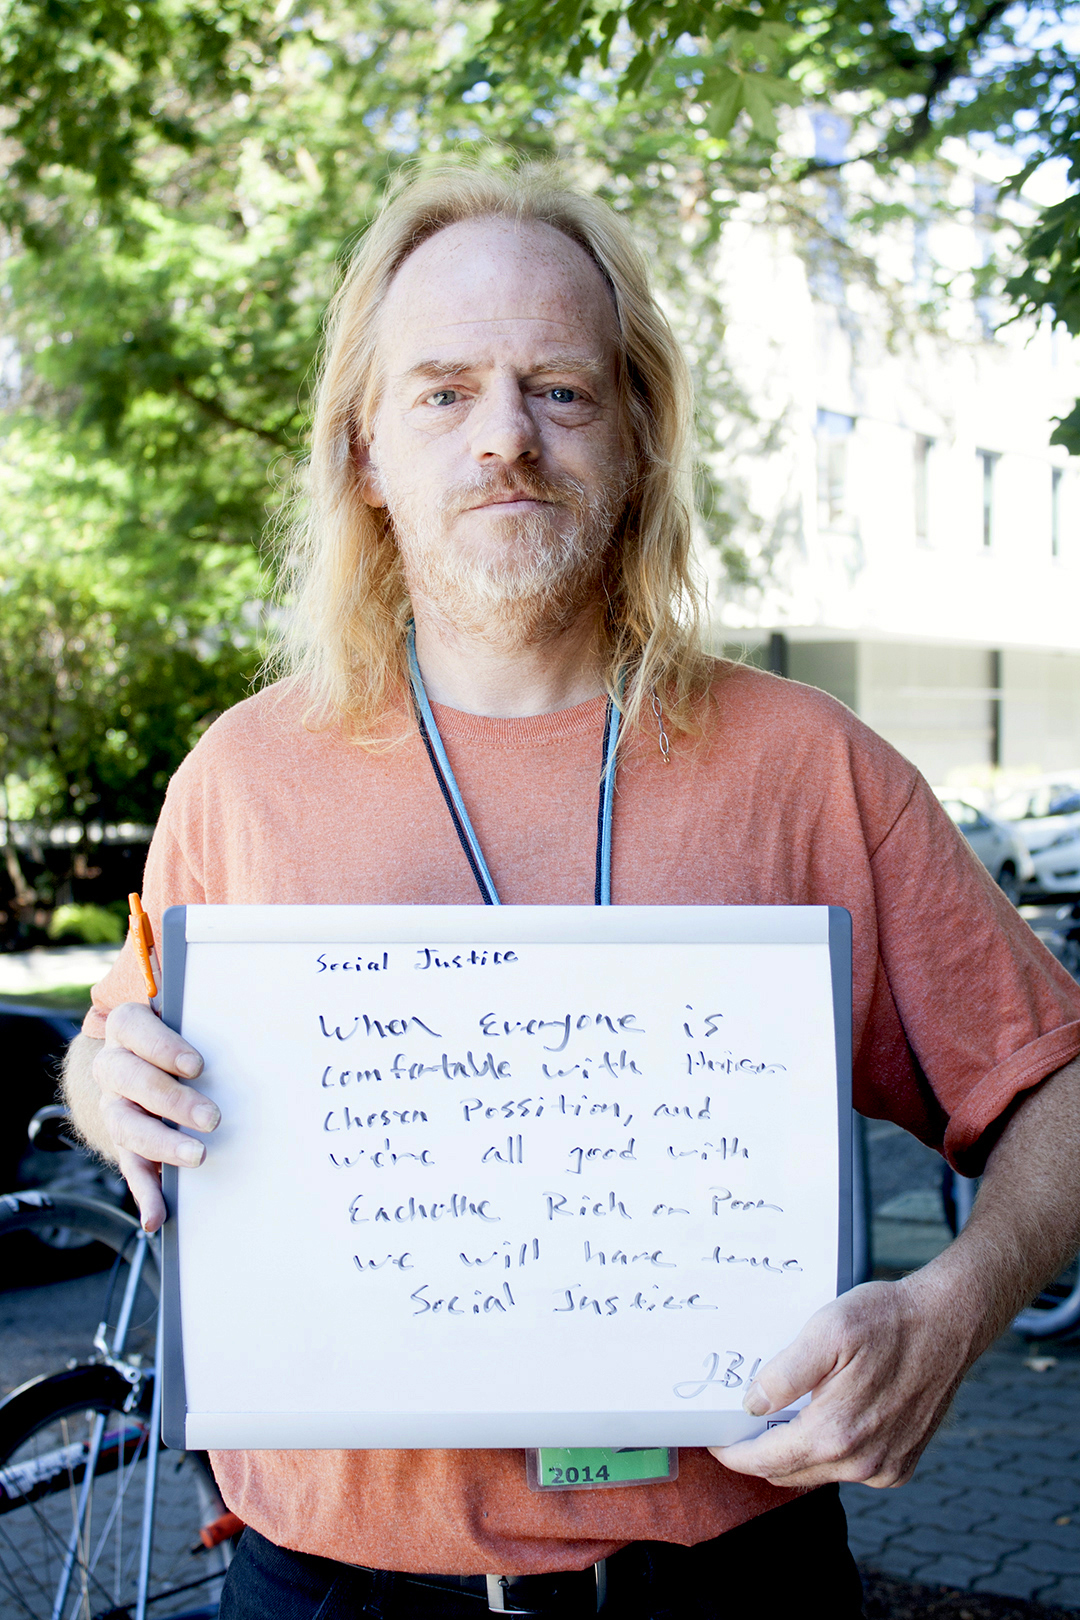 Social Justice
When Everyone is
comfortable with
Chosen Possition, and
we're all good with
Eachothe Rich or Poor
we will have
Social Justice
2014